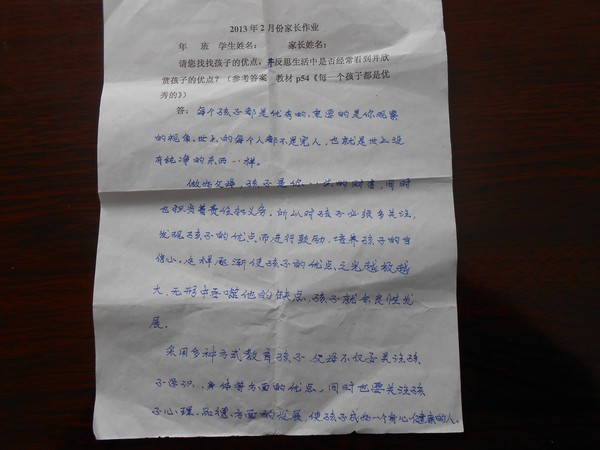 2013年2月份家长作业
年 班 学生姓名： 家长姓名：
请您找找孩子的优点，并反思生活中是否经常看到并欣
赏孩子的优点？（参考答案 教材p54《每一个孩子都是优
秀的》）
答：每个孩子都是优秀的，重要的是你观察
的视角，世上的每个人都不是完人，也就是世上没
有纯净的东西一样。
做为父母，孩子是你一生的财富，同时
也担负着责任和义务。所以对孩子必须多关注，
发现孩子的优点而进行鼓励，培养孩子的自
信心。这样逐渐使孩子的优点之光越放越
大，无形中吞噬他的缺点，孩子就会良性发
展。
采用多种方式教育孩子，父母不仅要关注孩
子学识、身体等方面的优点，同时也要关注孩
子心理、品德方面的发展，使孩子成为一个身心健康的人。